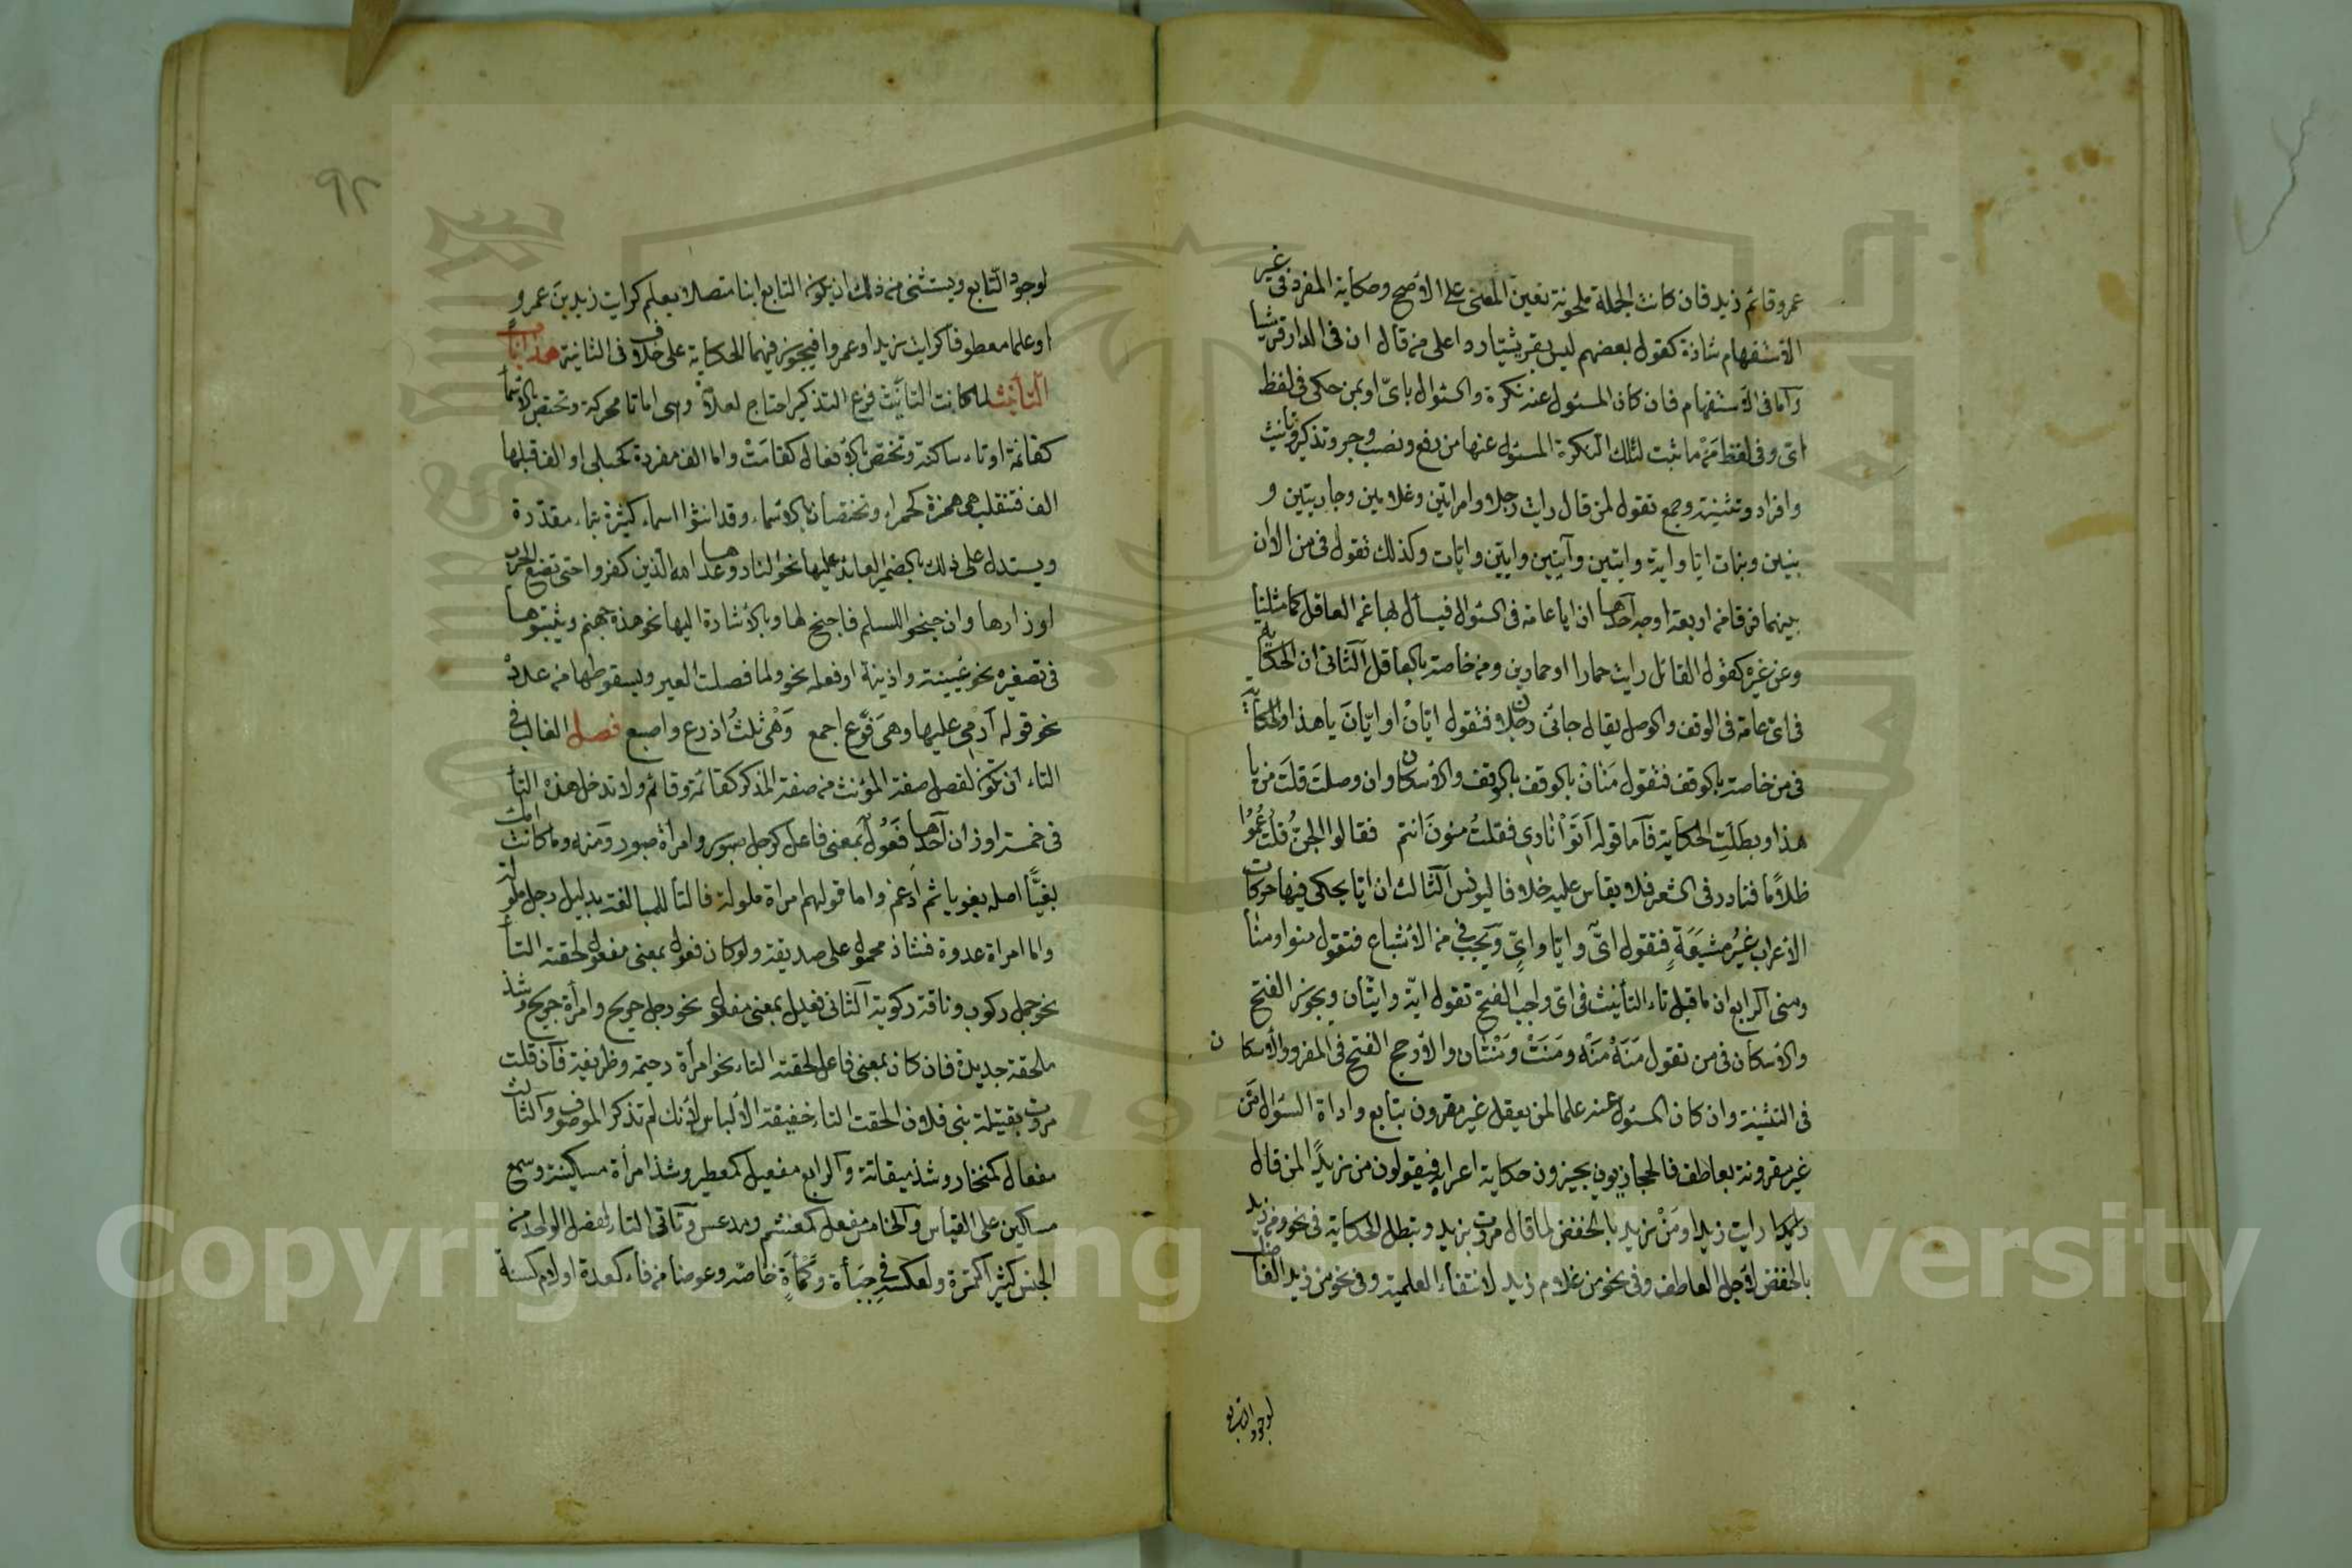 عمرو قائم زيد فان كانت الجملة ملحونة تعين المعنى على الاصح وحكاية المفرد فى غير
الاستفهام شاذة كقول بعضهم ليس بقرشيا رواعلى من قال ان فى الدار قرشيا
واما فى الاستفهام فان كان المسئول عنه نكرة والسئوال باىّ او بمن حكى فى لفظ
اى وفى لفظ مَنْ ما ثبت لتلك النكرة المسئول عنها من رفع ونصب وجر وتذكير وتانيث
وافراد وتثنية وجمع تقول لمن قال رايت رجلا وامراتين وغلامين وجاريتين و
بنين وبنات ايا واية وايين وآيتين وايين وايات وكذلك تقول فى من الا ان
بينهما فرقا من اربعة اوجه آحدها ان ايا عامة فى السئوال فيسأل بها عن العاقل كما مثلنا
وعن غيره كقول القائل رايت حمارا او حمارين ومن خاصة بالعاقل آلثانى ان الحكاية
فى اى عامة فى الوقف والوصل يقال جائنى رجلان فتقول ايّانْ او ايّانَ يا هذا والحكاية
فى من خاصة بالوقف فتقول مَنَانْ بالوقف بالوقف والاسكان وان وصلت قلت من يا
هذا وبطلَتِ الحكاية فآما قوله اَتَوْا نادى فقلتُ منونَ انتم فقالوا الجنّ قُلتُ عُموُا
ظلامًا فنادر فى الشعر فلا يقاس عليه خلافا ليونس آلثالث ان ايا يحكى فيها حركات
الاعراب غيرُ مشبَعَةٍ فتقول اىٌّ وايّا واىٍّ وَيجب فى من الاشباع فتقول منو او منا
ومنى آلرابع ان ما قبل تاء التأنيث فى اى واجب الفتح تقول ايّة وايّتان ويجوز الفتح
والاسكان فى من تقول مَنَهْ مَنَهْ ومَنَتْ ومَنْتَان والارجح الفتح فى المفرد والاسكان
فى التثنية وان كان المسئول عنه علما لمن يعقل غير مقرون بتابع واداة السئوال مَن
غير مقرونة بعاطف فالحجازيون يجيزون حكاية اعرابه فيقولون من زيدًا لمن قال
رايت زيدا ومَنْ زيدٍ بالخفض لمن قال مررت بزيد وتبطل الحكاية فى نحو ومن زيد
بالخفض لاجل العاطف وفى نحو من غلام زيد لانتفاء العلمية وفى نحو من زيد الفاضل
لوجود التابع
٩٢
لوجود التابع ويستثنى من ذلك ان يكون التابع ابنا متصلا بعلم كرايت زيد بن عمرو
او علما معطوفا كرايت زيدا وعمروا فيجوز فيهما الحكاية على خلاف فى الثانية هذا باب
التأنيث لما كانت التأنيث فرع التذكير احتاج لعلامة وهى اما تا محركة وتختص بالاسماء
كقائمة او تاء ساكنة وتختص بالافعال كقامَتْ واما الف مفردة كحبلى او الف قبلها
الف فتنقلب هى همزة كحمراء وتختصان بالاسماء وقد انثوا اسماء كثيرة بتاء مقدّرة
ويستدل على ذلك بالضمير العائد عليها نحو النار وعدها الله الذين كفروا حتى تضع الحرب
اوزارها وان جنحوا للسلم فاجنح لها وبالاشارة اليها نحو هذه جهنم وبثبوتها
فى تصغيره نحو عُيينة واذينة او فعله نحو ولما فصلت العير وبسقوطها من عدده
نحو قوله آرْمى عليها وهى فَرْع اجمع وَهْى ثلثُ اذرع واصبع فصل الغالب فى
التاء ان تكون لفصل صفة المؤنث من صفة المذكر كقائمة وقائم ولا تدخل هذه التأ
فى خمسة اوزان آحدها فَعُول بمعنى فاعل كرجل صبور وامراة صبور ومنه وما كانت امك
بغيًّا اصله بغويا ثم ادغم واما قولهم امراة ملولة فالتأ للمبالغة بدليل رجل ملولة
واما امراة عدوة فشاذ محمول على صديقة ولو كان فعول بمعنى مفعول لحقته التأ
نحو جمل ركوب وناقة ركوبة آلثانى فعيل بمعنى مفعول نحو رجل جريح وامرأة جريح وشذ
ملحفة جديدة فان كان بمعنى فاعل لحقته التاء نحو امرأة رحيمة وظريفة فآن قلت
مررت بقتيلة بنى فلان الحقت التاء خفيفة الالباس لانك لم تذكر الموصوف وآلثالث
مفعال كمنحار وشذ ميقانة وآلرابع مفعيل كمعطير وشذ امرأة مسكينة وسمع
مسكين على القياس وآلخامس مفعل كمغشم ومدعس وتآتى التاء لفصل الواحد من
الجنس كثيرا كتمرة ولعكسه فى جبأة وكَمْأَةٍ خاصّه وعوضا من فاء كعدة او لام كسنة